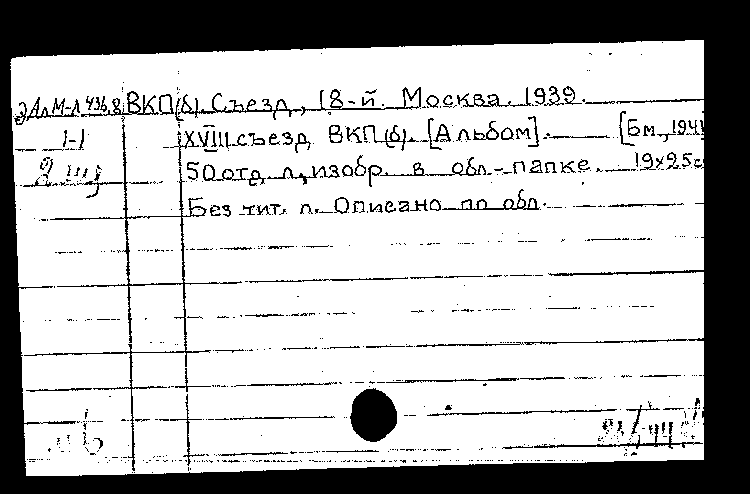 ЭАлМ-л 436.8 ВКП(б). Съезд, 18-й. Москва. 1939.
1-1 XVIII съезд ВКП(б). [Альбом]. [Б.м., 1941
2 экз 50 отд. л., изобр. в обл.-папке. 19х25с
Без тит. л. Описано по обл.